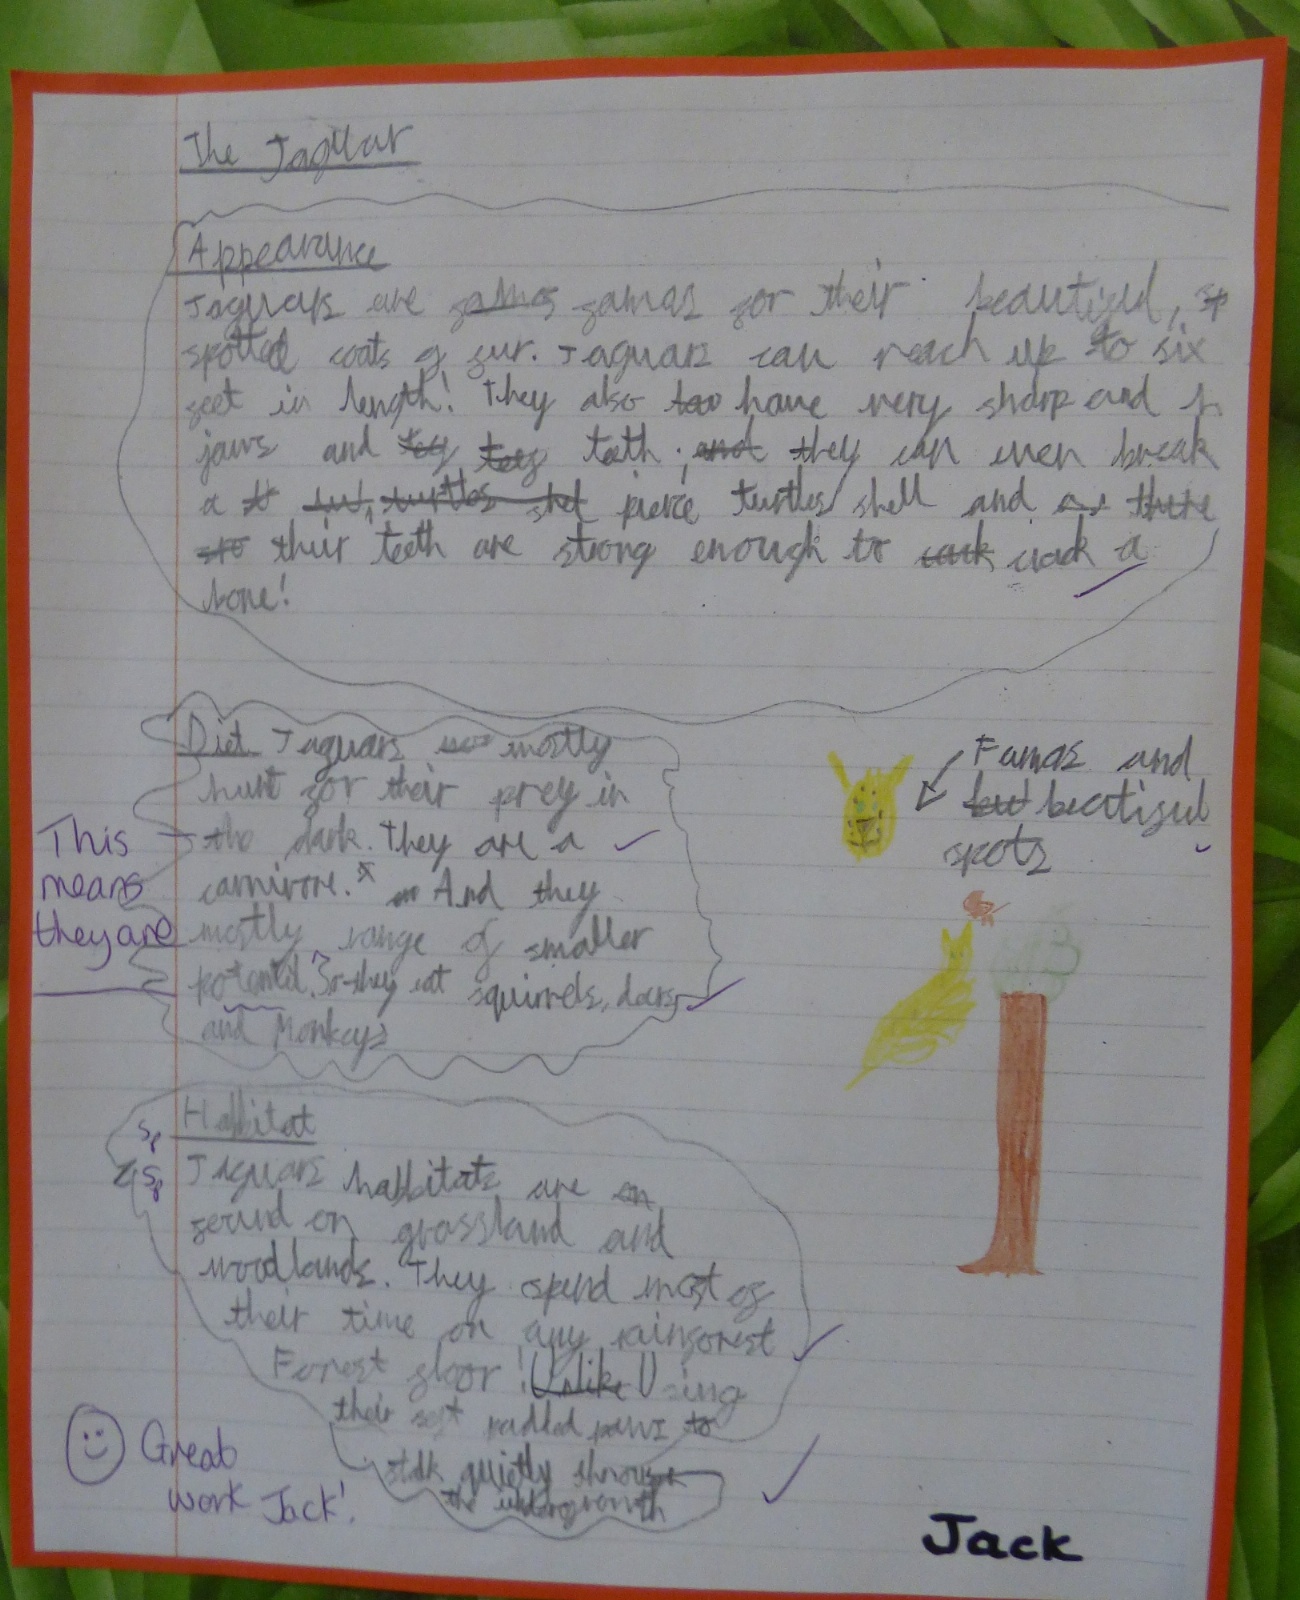 The Jaguar
Appearance
Jaguars are famos famos for their beautiful, sp
spotted coats of fur. Jaguars can reach up to six
feet in length! They also too have very sharp and
jaws and teeth. and they can even break
a turtles shel pierce turtles shell and
their teeth are strong enough to crack a
bone!
Diet Jaguars mostly
hunt for their prey in
the dark. They are a
carnivore. And they
mostly range of smaller
So they eat squirrels, deers
and Monkeys
This
means
they are
Famos and
but beatiful
spots
Sp
Habbitat
Sp
Jaguars habbitats are on
found on grassland and
woodlands. They spend most of
their time on any rainforest
Forest floor! Unlike Using
their soft padded paws to
stalk quietly through
the undergrowth
Great
work Jack!
Jack